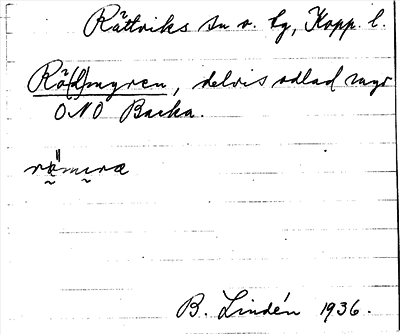 Rättviks sn o. hg, Kopp. l.
Rö(d)myren, delvis odlad myr
ONO Backa.
B. Lindén 1936.